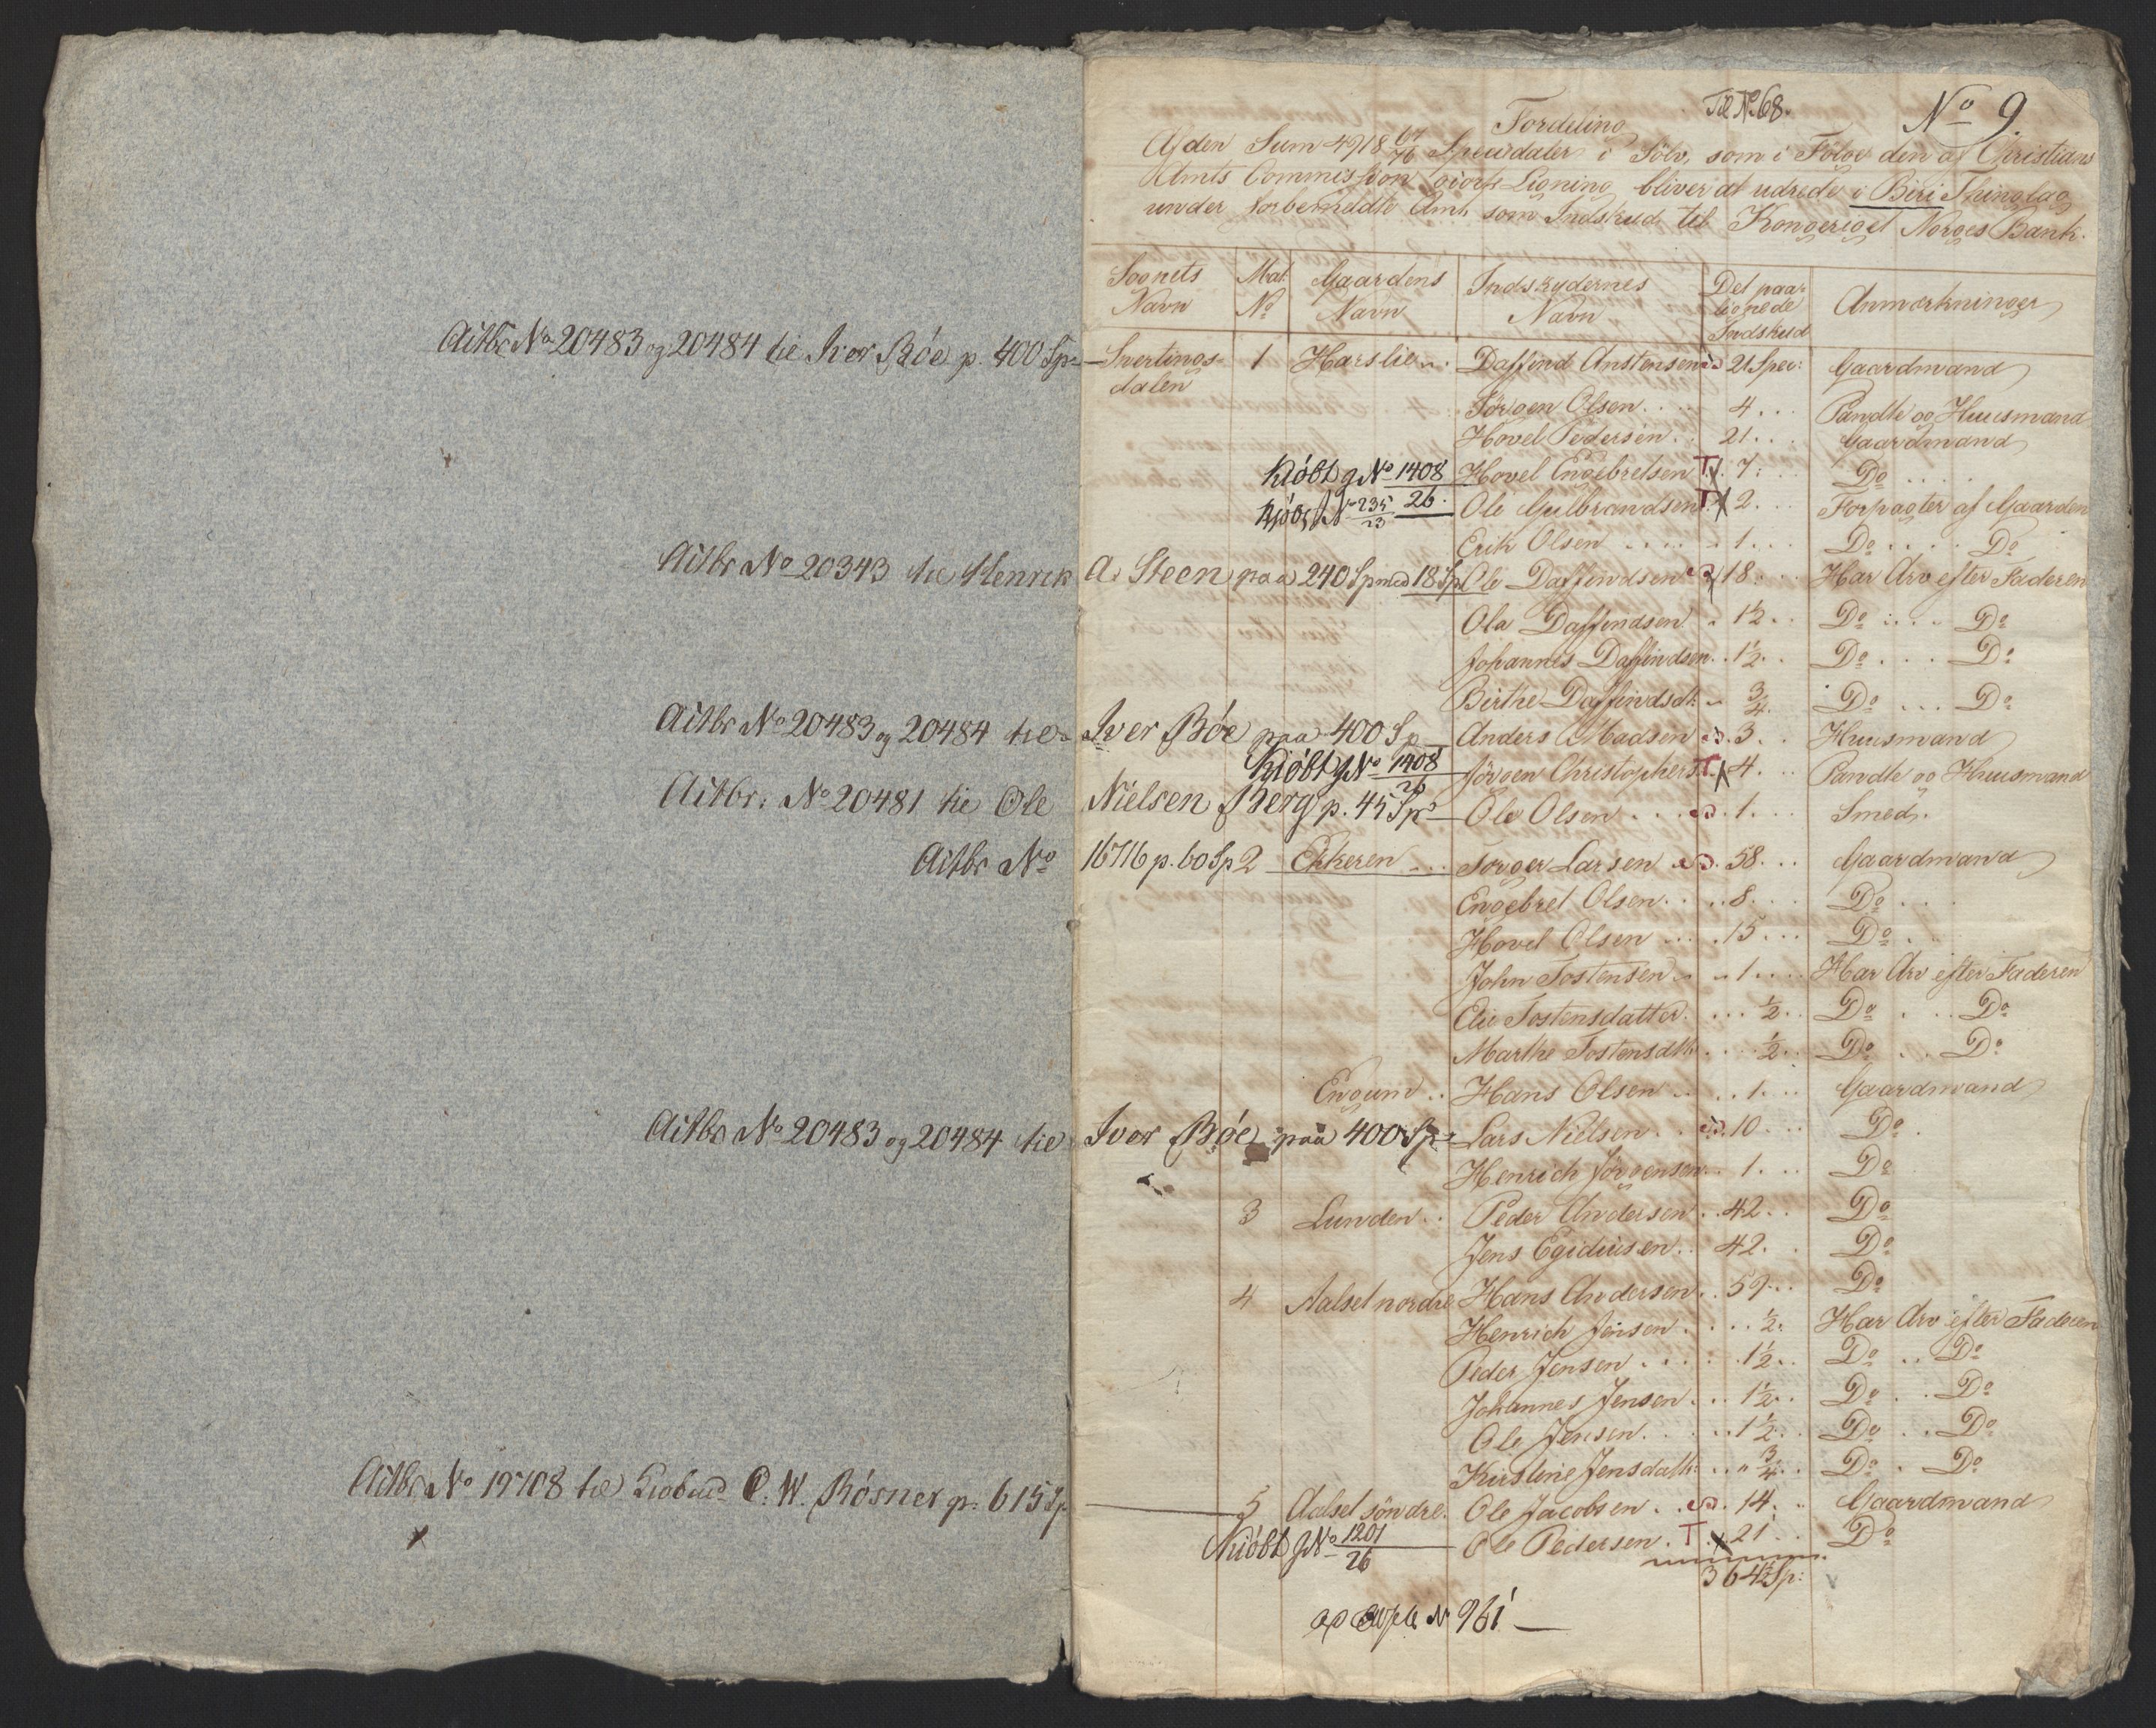 Til No 68.
No 9.
Fordeling
Af den Sum 4918 67/76 Speciedaler i Sölv, som i Fölge den af Christians
Amts Commission giorte Ligning bliver at udrede i Biri Thinglag
under forbemeldte Amt, som Indskud til Kongeriget Norges Bank.
Sognets Navn | Mat. No | Gaardens Navn | Indskydernes Navn | Det paalignede Indskud | Anmærkninger
Actbr No 20483 og 20484 til Iver Bóe p. 400 Sp
Snertingsdalen 1 Harslien Daffind Anstensen 21 Spec: Gaardmand
Jörgen Olsen 4 Pandte og Huusmand
Hovel Pedersen 21 Gaardmand
Kióbt g No 1408/26 Hovel Engebretsen T 7 Do
No 235/23 Ole Gulbrandsen T 2 Forpagter af Gaarden
Erik Olsen 1 Do Do
Actbr No 20343 til Henrik A. Steen paa 240 Sp med 18 Sp Ole Daffindsen 18 Har Arv efter Faderen
Ola Daffindsen 1½ Do Do
Johannes Daffindsen 1½ Do Do
Birthe Daffindsdtr ¾ Do Do
Actbr No 20483 og 20484 til Iver Bóe paa 400 Sp Anders Madsen 3 Huusmand
Kióbt g No 1408/26 Jörgen Christophers T 4 Pandte og Huusmand
Actbr: No 20481 til Ole Nielsen Berg p. 45 Sp Ole Olsen 1 Smed
Actbr No 16716 p. 60 Sp 2 Ekkeren Torger Larsen 58 Gaardmand
Engebret Olsen 8 Do
Hovel Olsen 15 Do
John Tostensen 1 Har Arv efter Faderen
Elie Tostensdatter ½ Do Do
Marthe Tostensdtr ½ Do Do
Engum Hans Olsen 1 Gaardmand
Actbr No 20483 og 20484 til Iver Bóe paa 400 Sp Lars Nielsen 10 Do
Henrich Jörgensen 1 Do
3 Lunden Peder Andersen 42 Do
Jens Egidiusen 42 Do
4 Aalset nordre Hans Andersen 59 Do
Henrich Jensen ½ Har Arv efter Faderen
Peder Jensen 1½ Do Do
Johannes Jensen 1½ Do Do
Ole Jensen 1½ Do Do
Kirstine Jensdattr ¾ Do Do
Actbr No 19708 til C. W. Rósner p: 615 Sp 5 Aalset söndre Ole Jacobsen 14 Gaardmand
Kióbt g No 1201/26 Ole Pedersen T 21 Do
364½ Sp:
No 961